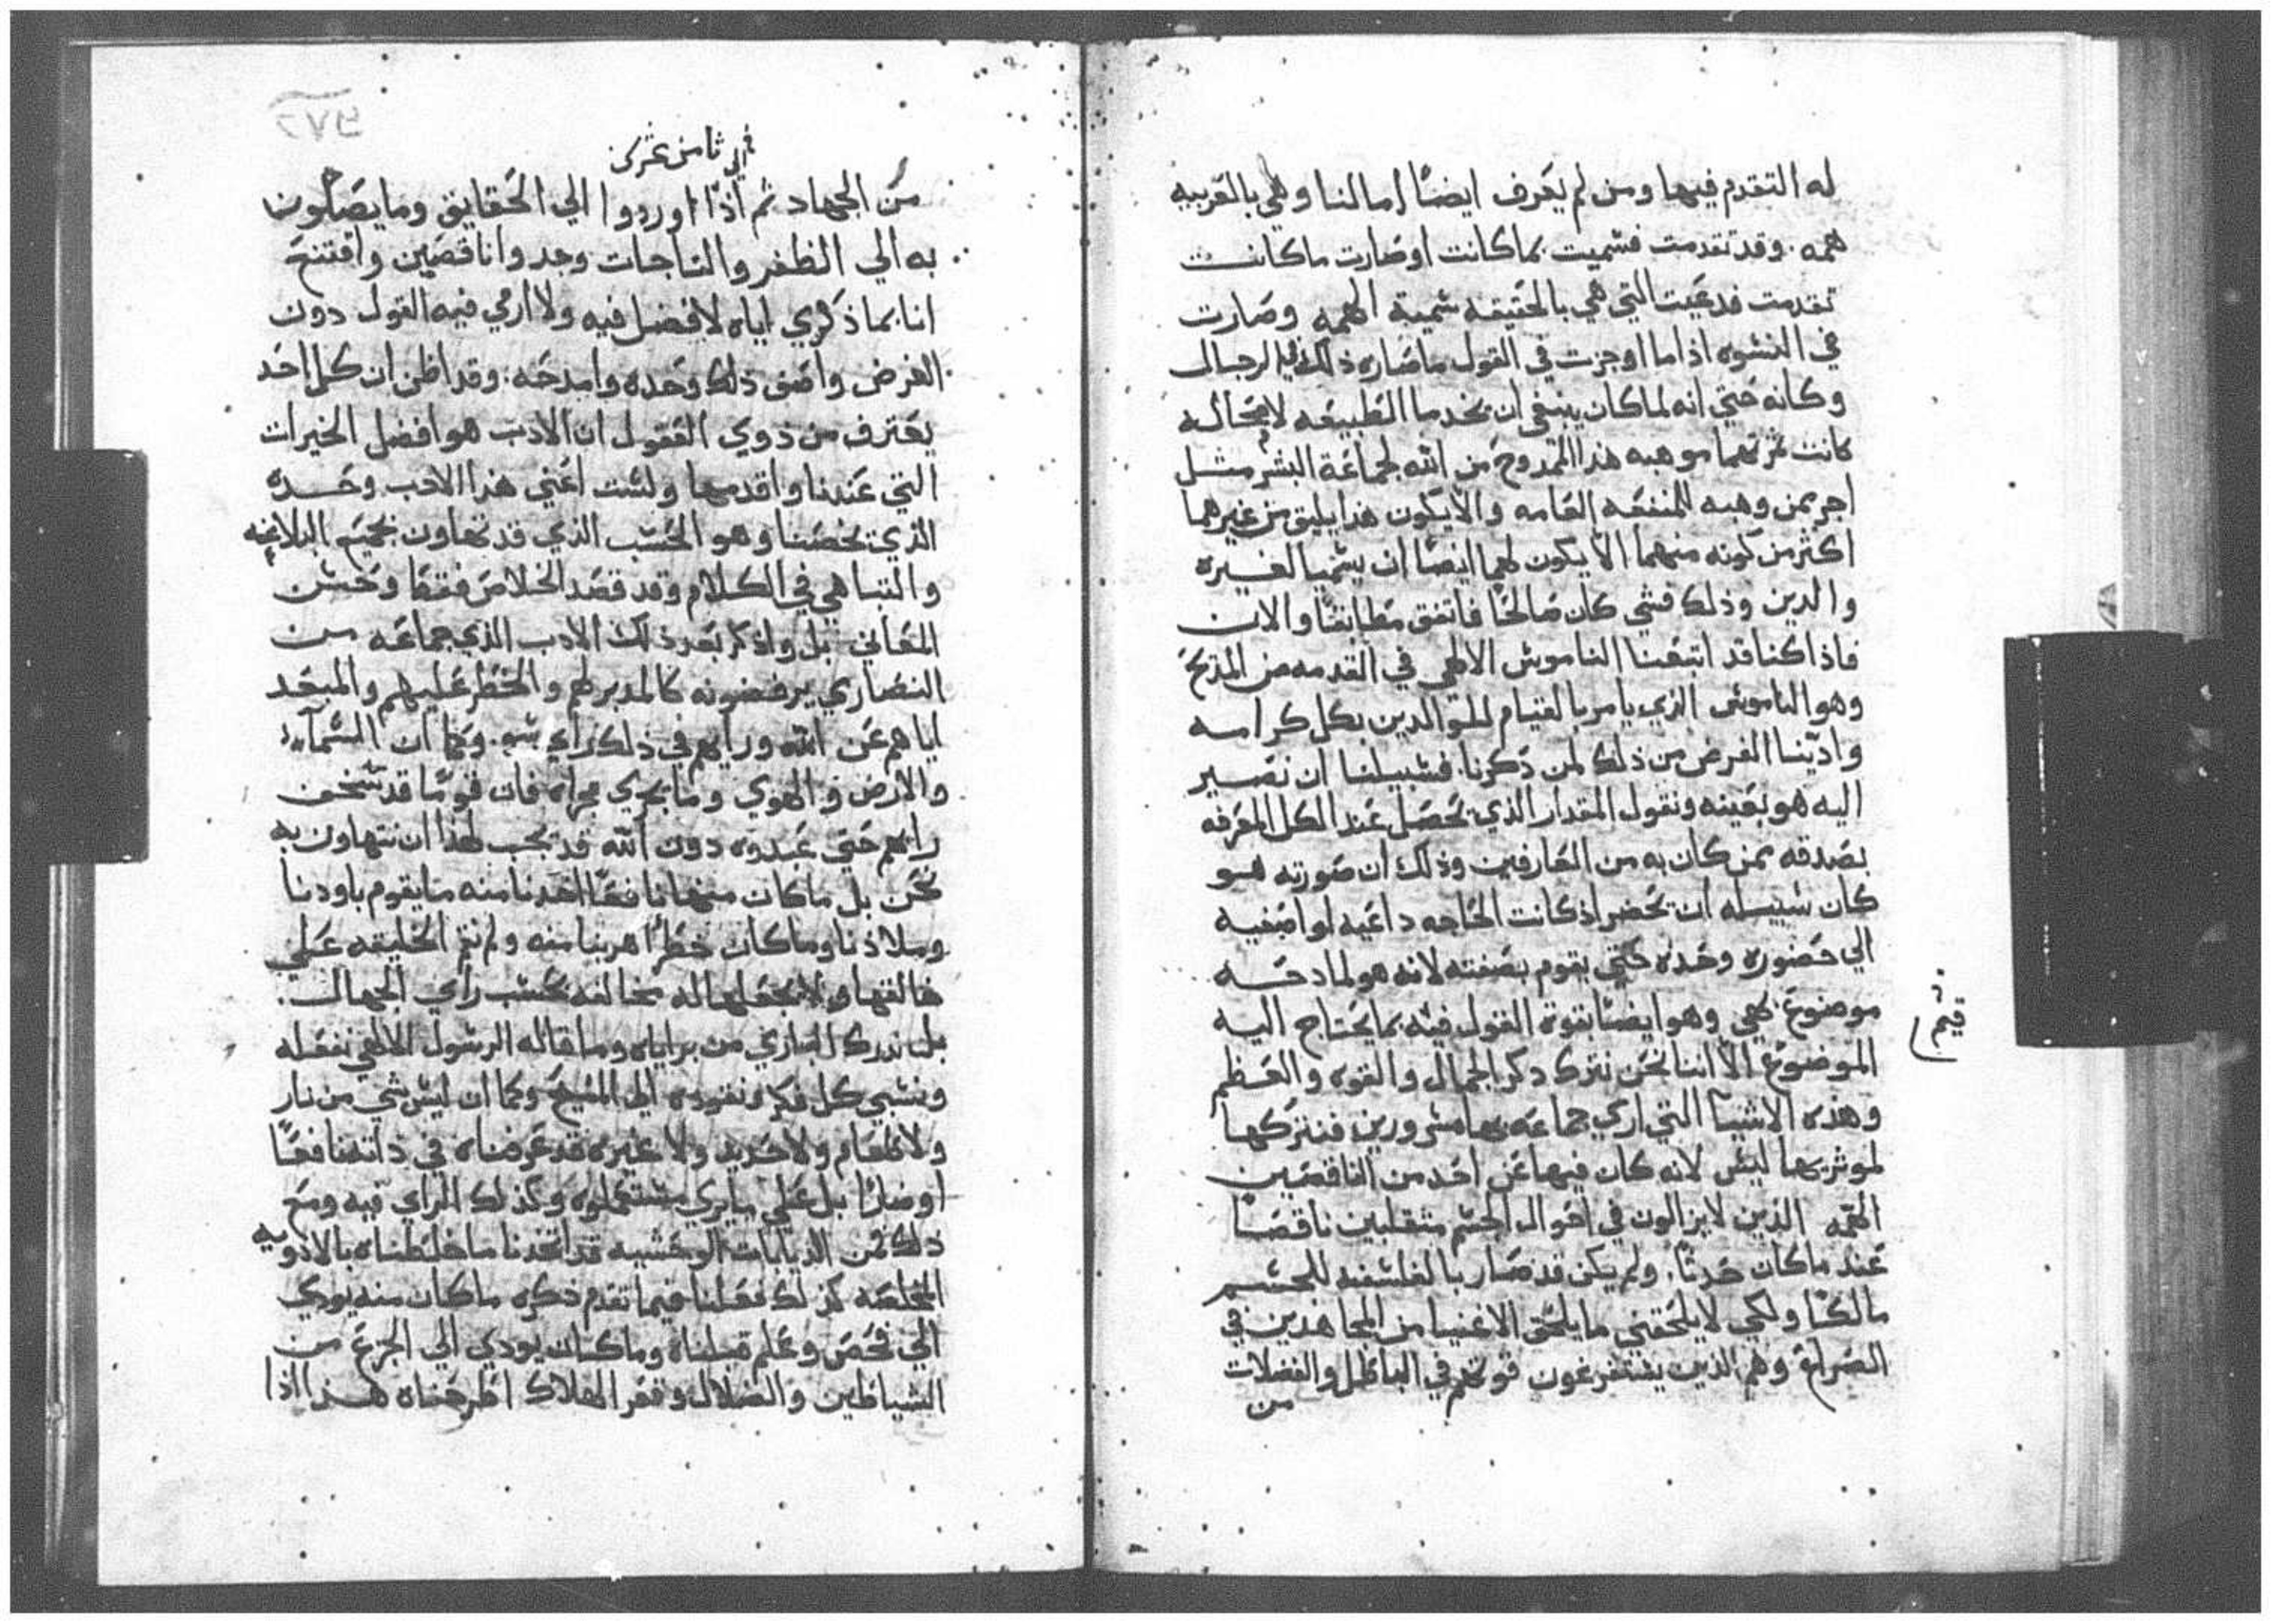 له التقدم فيها ومن لم يعرف ايضًا امالنا وهي بالقربيه
همه. وقد تقدمت فسميت بما كانت او صارت ما كانت
تقدمت فدعيت التي هي بالحقيقه سمية الهمه وصارت
في النشوه اذا ما اوجزت في القول ما صاره ذلك في الرجال
وكانه حتي انه لما كان ينبغي ان يخدما الطبيعه لا محاله
كانت ثمرتهما موهبه هذا الممدوح من الله لجماعة البشر مثل
اجر بمن وهبه للمنفعه العامه والا يكون هذا يليق من غيرهما
اكثر من كونه منهما الا يكون لهما ايضًا ان يسميا لغيره
والدين وذلك فشي كان صالحًا فاتفق مطابقًا والان
فاذا كنا قد اتبعنا الناموس الالهي في القدمه من المديح
وهو الناموس الذي يامر بالقيام للوالدين بكل كرامه
وادينا الغرض من ذلك لمن ذكرنا. فسبيلنا ان نصير
اليه هو بعينه ونقول المقدار الذي تحصل عند الكل المعرفه
بصدقه بمن كان به من العارفين وذلك ان صورته هو
كان سبيله ان تحضر اذ كانت الحاجه داعيه لواصفيه
الي حضوره وحده حتي يقوم بصفته لانه هو لمادحه
موضوع بهي وهو ايضًا بقوة القول فيه بما يحتاج اليه
الموضوع الا اننا نحن نترك ذكر الجمال والقوه والعظم
وهذه الاشيآ التي اري جماعه بها مسرورين فنتركها
لموثريها ليس لانه كان فيها عن احد من الناقصين
الهمه الذين لا يزالون في احوال الجسم متقلبين ناقصًا
عند ما كان حدثًا. ولم يكن قد صار بالفلسفه للجسم
مالكًا ولكي لا يلحقني ما يلحق الاغنيا من المجاهدين في
الصراع وهم الذين يستفرغون قوتهم في الباطل والفضلات
من
ثامن عشر
من الجهاد ثم اذا اوردوا الي الحقايق وما يصلون
به الي الظفر والتاجات وجدوا ناقصين وافتتح
انا بما ذكري اياه لا فضل فيه ولا ارمي فيه القول دون
الغرض واصف ذلك وحده وامدحه. وقد اظن ان كل احد
يعترف من ذوي العقول ان الادب هو افضل الخيرات
التي عندنا واقدمها ولست اعني هذا الادب وحده
الذي يخصنا وهو الحسب الذي قد تهاون بجميع البلاغه
والتباهي في الكلام وقد قصد الخلاص فقط وحسن
المعاني بل واذكر بعد ذلك الادب الذي جماعه من
النصاري يرفضونه كالمدبر لهم والخطر عليهم والمبعد
اياهم عن الله ورايهم في ذلك راي سو. وكما ان السمآ
والارض والهوي وما يجري مجراه فان قومًا قد سخف
رايهم حتي عبدوه دون الله قد يجب لهذا ان نتهاون به
نحن بل ما كان منها نافعًا اخدنا منه ما يقوم باودنا
وملاذنا وما كان خطرًا هربنا منه ولم نقم الخليقه علي
خالقها ولا نجعلها له مخالفه بحسب راي الجهال.
بل ندرك الباري من براياه وما قاله الرسول الالهي نفعله
ونسبي كل فكر ونقوده الي المسيح وكما ان ليس شي من نار
ولا طعام ولا حديد ولا غيره قد عرفناه في ذاته نافعًا
او ضارًا بل علي ما يري مستعملوه وكذلك الراي فيه ومع
ذلك فمن الدبابات الوحشيه قد اتخدنا ما خلطناه بالادويه
المخلصه كذلك فعلنا فيما تقدم ذكره ما كان منه يودي
الي فحص وعلم قبلناه وما كان يودي الي الجزع من
الشياطين والضلال وقعر الهلاك اطرحناه هذا اذا